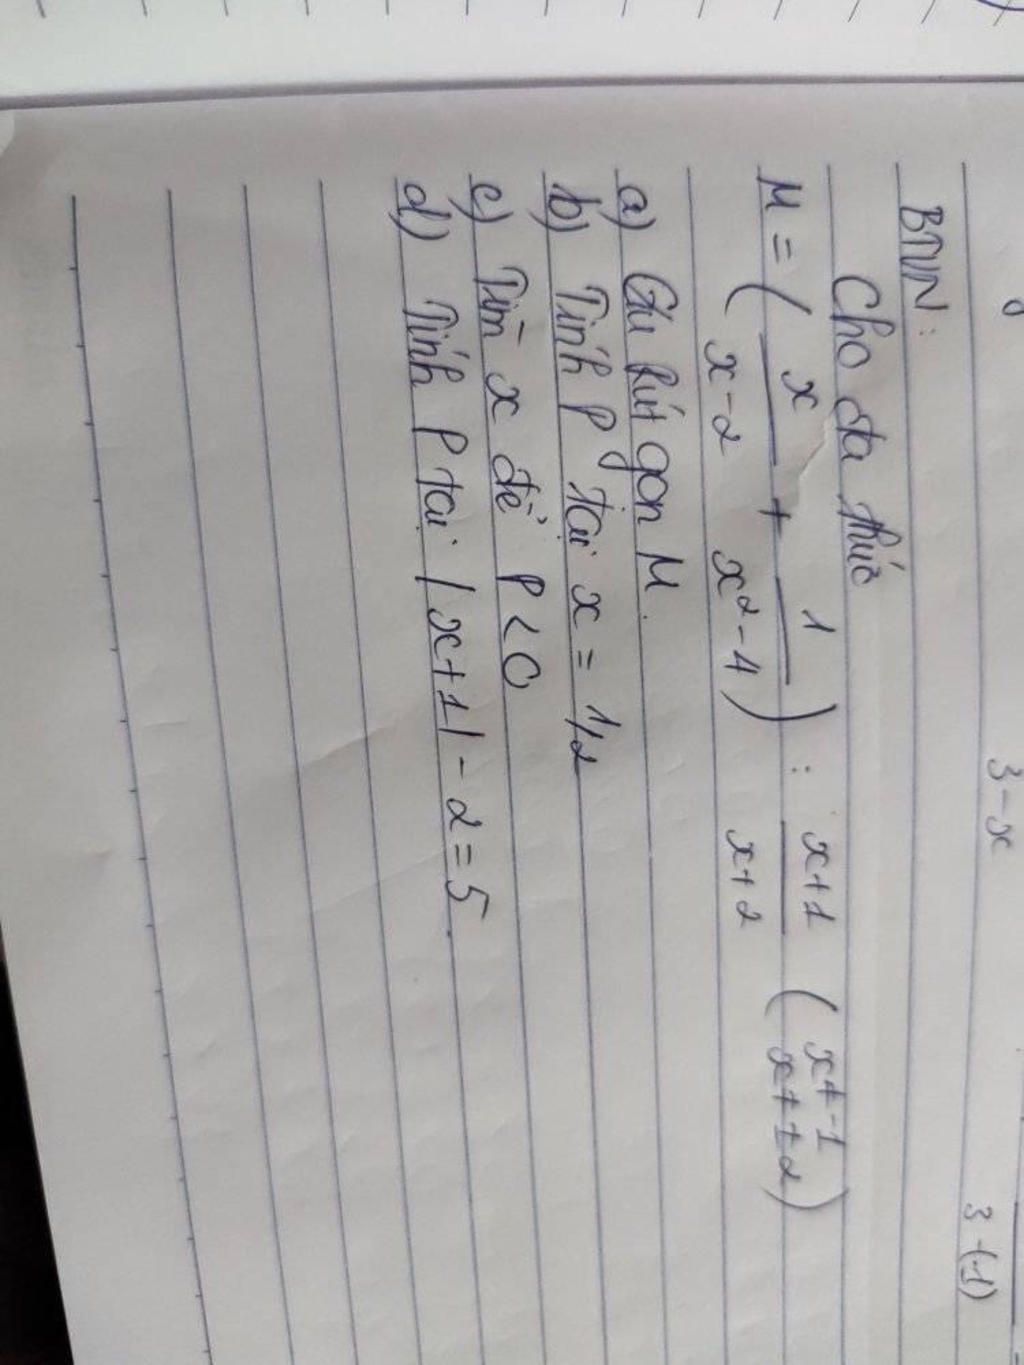 3-x
3-(-1)
BTVN:
Cho đa thức
M = ( x/x-2 + 1/x²-4 ) : x+1/x+2 ( x≠-1
x≠±2 )
a) rút gọn M.
b) Tính P tại x = 1/2
c) Tìm x để P < 0
d) Tính P tại |x+1| - 2 = 5.